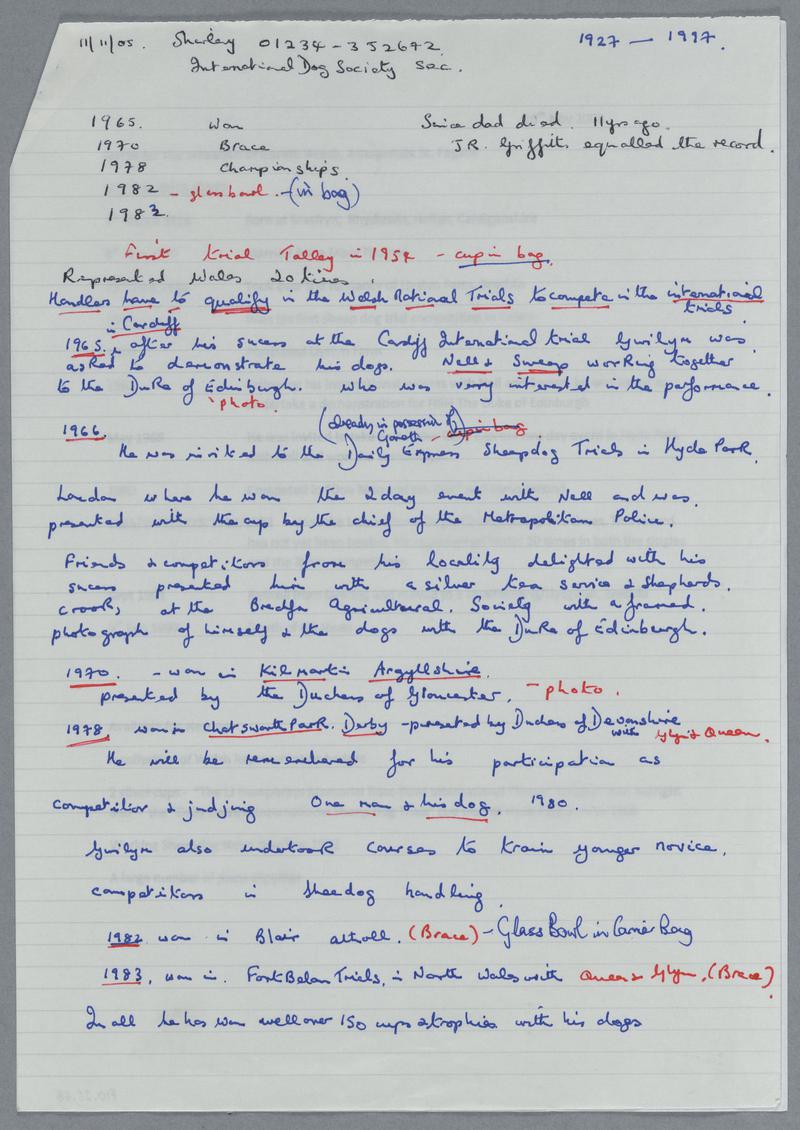 11/11/05. Shirley 01234-352672. 1927 — 1997.
International Dog Society Sec.
1965. won Since dad died. 11yrs ago.
1970 Brace J.R. Griffith equalled the record.
1978 Championships.
1982 - glass bowl. - (in bag)
1983.
First trial Talley in 1954 - cup in bag.
Represented Wales 20 times.
Handlers have to qualify in the Welsh National Trials to compete in the international trials
in Cardiff
1965. after his sucess at the Cardiff International trial Gwilym was
asked to demonstrate his dogs. Nell & Sweep working together
to the Duke of Edinburgh. who was very interested in the performance.
'photo.
(already in possession of
1966. Gareth - cup in bag
He was invited to the Daily Express Sheepdog Trials in Hyde Park.
London where he won the 2 day event with Nell and was.
presented with the cup by the chief of the Metropolitan Police.
Friends & competitors from his locality delighted with his
sucess presented him with a silver tea service & shepherds.
crook, at the Agricultural. Society with a framed.
photograph of himself & the dogs with the Duke of Edinburgh.
1970. - won in Kilmartin Argyllshire.
presented by the Duchess of Gloucester. - photo.
1978. won in Chatsworth Park. Derby - presented by Duchess of Devonshire
with Glyn & Queen.
He will be remembered for his participation as
competitor & judging One man & his dog. 1980.
Gwilym also undertook courses to train younger novice.
competitors in sheedog handling.
1982 won in Blair atholl. (Brace) - Glass Bowl in Carrier Bag
1983, won in. Fort Belan Trials, in North Wales with Queen & Glyn. (Brace).
In all he has won well over 150 cups & trophies with his dogs